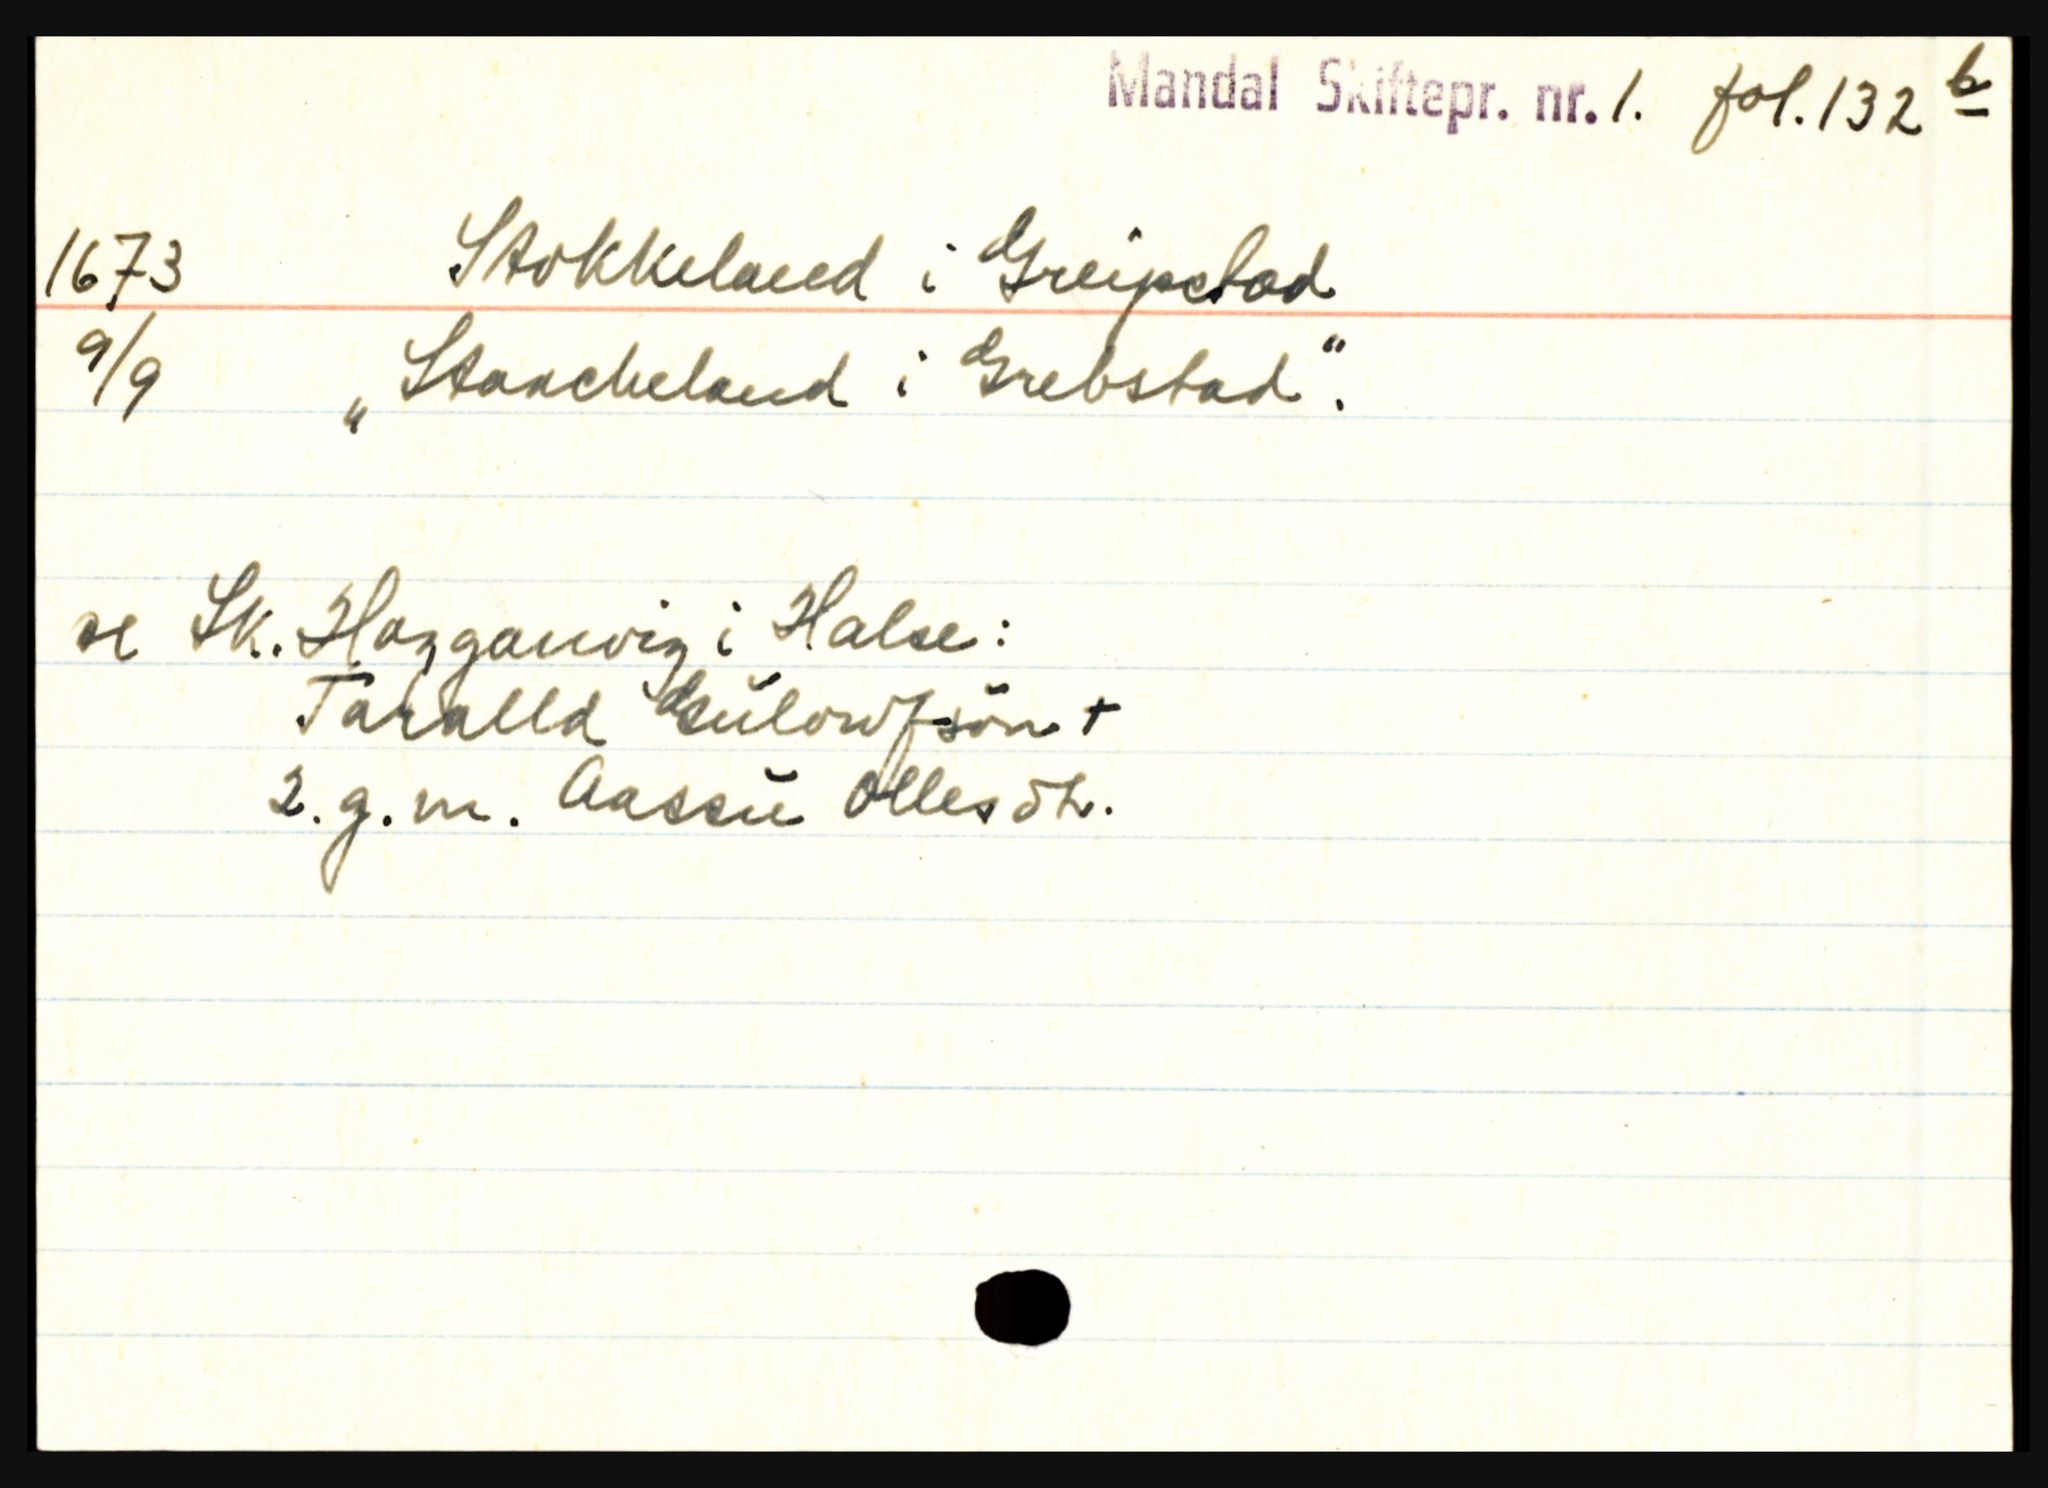 Mandal Skiftepr. nr. 1. fol. 132 b
1673 Stokkeland i Greipstad
9/9 „Staacheland i Grebstad".
se Sk. Hozganvig i Halse:
Taralld Gŭlowfsön +
2. g. m. Aassŭ Ollesdtr.